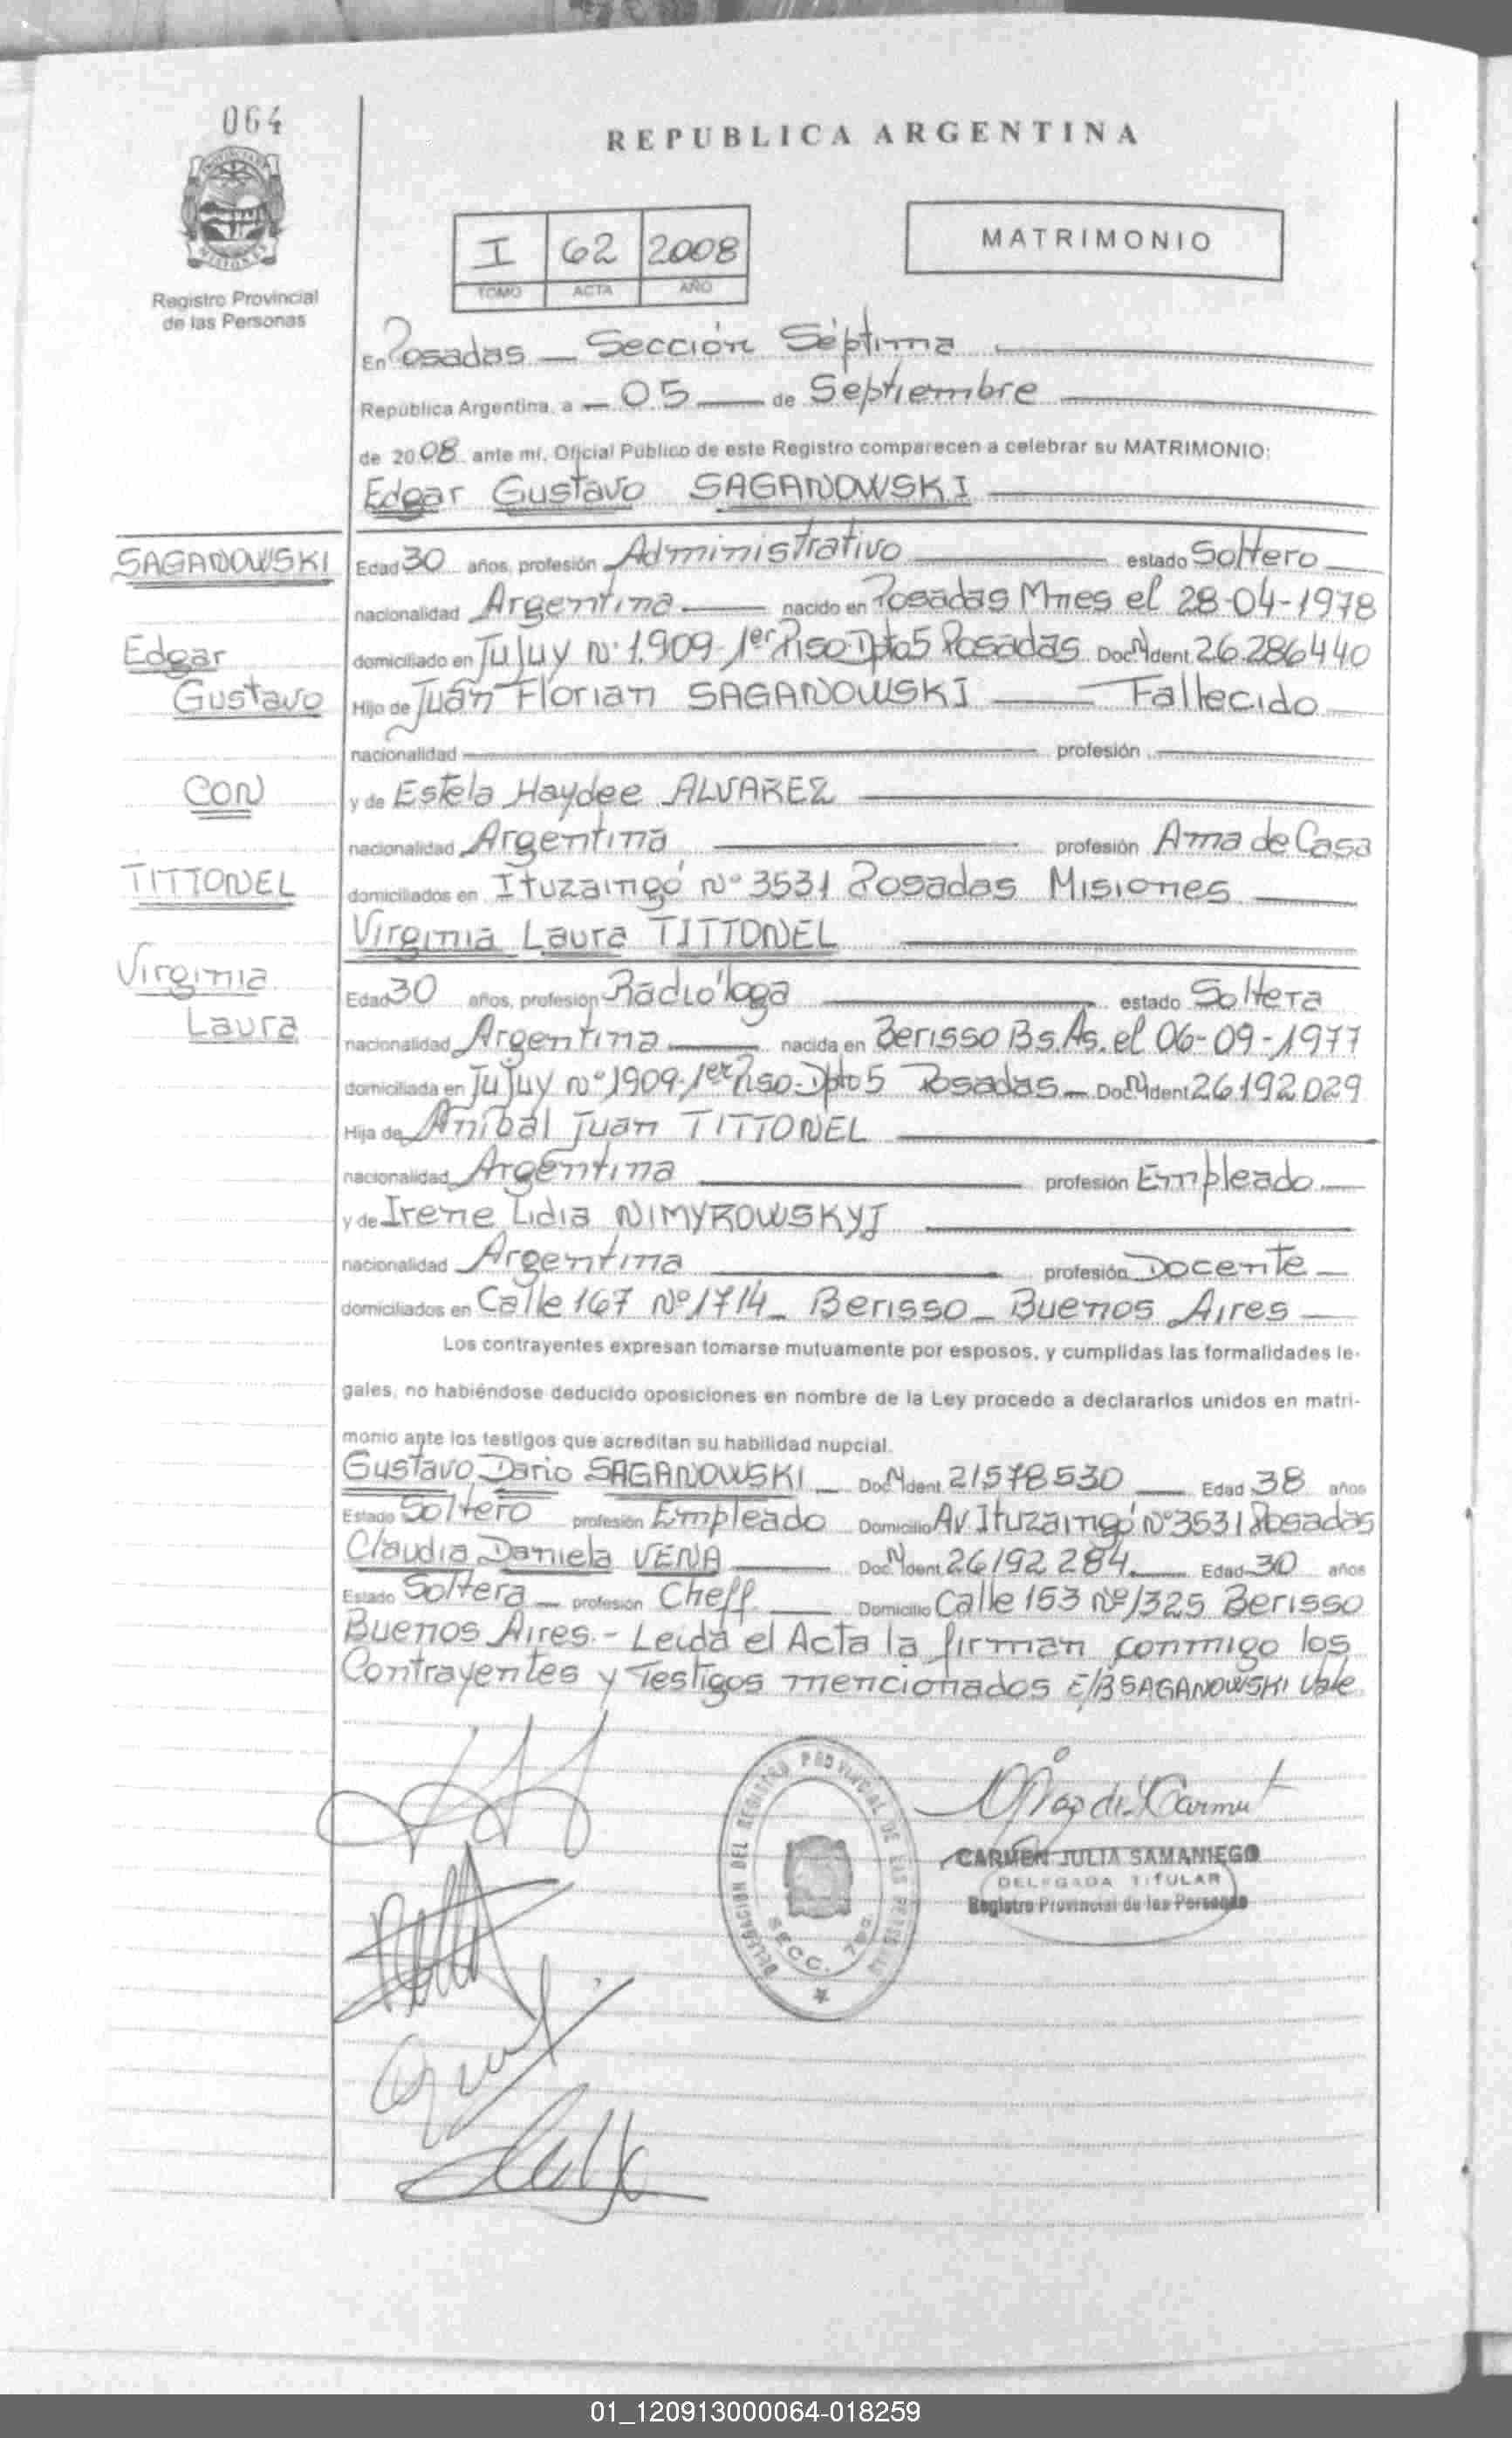 064
REPUBLICA ARGENTINA
I 62 2008
TOMO ACTA AÑO
MATRIMONIO
Registro Provincial
de las Personas
En Posadas — Sección Séptima
República Argentina, a — 05 — de Septiembre
de 2008 ante mí, Oficial Público de este Registro comparecen a celebrar su MATRIMONIO:
Edgar Gustavo SAGANOWSKI
SAGANOWSKI
Edad 30 años, profesión Administrativo estado Soltero
nacionalidad Argentina nacido en Posadas Mnes el 28-04-1978
Edgar
domiciliado en Jujuy Nº 1.909-1er Piso-Dpto5 Posadas Doc. N Ident. 26.286440
Gustavo
Hijo de Juan Florian SAGANOWSKI — Fallecido
nacionalidad profesión
CON
y de Estela Haydee ALVAREZ
nacionalidad Argentina profesión Ama de Casa
TITTONEL
domiciliados en Ituzaingó Nº 3531 Posadas Misiones
Virginia Laura TITTONEL
Virginia
Edad 30 años, profesión Radióloga estado Soltera
Laura
nacionalidad Argentina nacida en Berisso Bs.As. el 06-09-1977
domiciliada en Jujuy nº 1909-1er Piso-Dpto 5 Posadas — Doc. N Ident. 26.192.029
Hija de Anibal Juan TITTONEL
nacionalidad Argentina profesión Empleado
y de Irene Lidia NIMYROWSKYJ
nacionalidad Argentina profesión Docente
domiciliados en Calle 167 Nº 1714 — Berisso — Buenos Aires
Los contrayentes expresan tomarse mutuamente por esposos, y cumplidas las formalidades le-
gales, no habiéndose deducido oposiciones en nombre de la Ley procedo a declararlos unidos en matri-
monio ante los testigos que acreditan su habilidad nupcial.
Gustavo Dario SAGANOWSKI — Doc. N Ident. 21578530 — Edad 38 años
Estado Soltero profesión Empleado Domicilio Av. Ituzaingó Nº3531 Posadas
Claudia Daniela VENA Doc. N Ident. 26192284 Edad 30 años
Estado Soltera profesión Cheff Domicilio Calle 153 Nº 1325 Berisso
Buenos Aires.- Leida el Acta la firman conmigo los
Contrayentes y Testigos mencionados E/B SAGANOWSKI Vale
DELEGACION DEL REGISTRO PROVINCIAL DE LAS PERSONAS
SECC. 7ma
CARMEN JULIA SAMANIEGO
DELEGADA TITULAR
Registro Provincial de las Personas
01_120913000064-018259